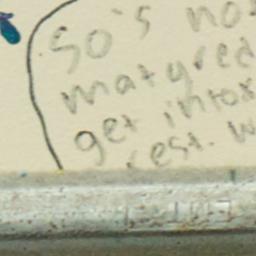 So's no
matyred
get into
rest. w